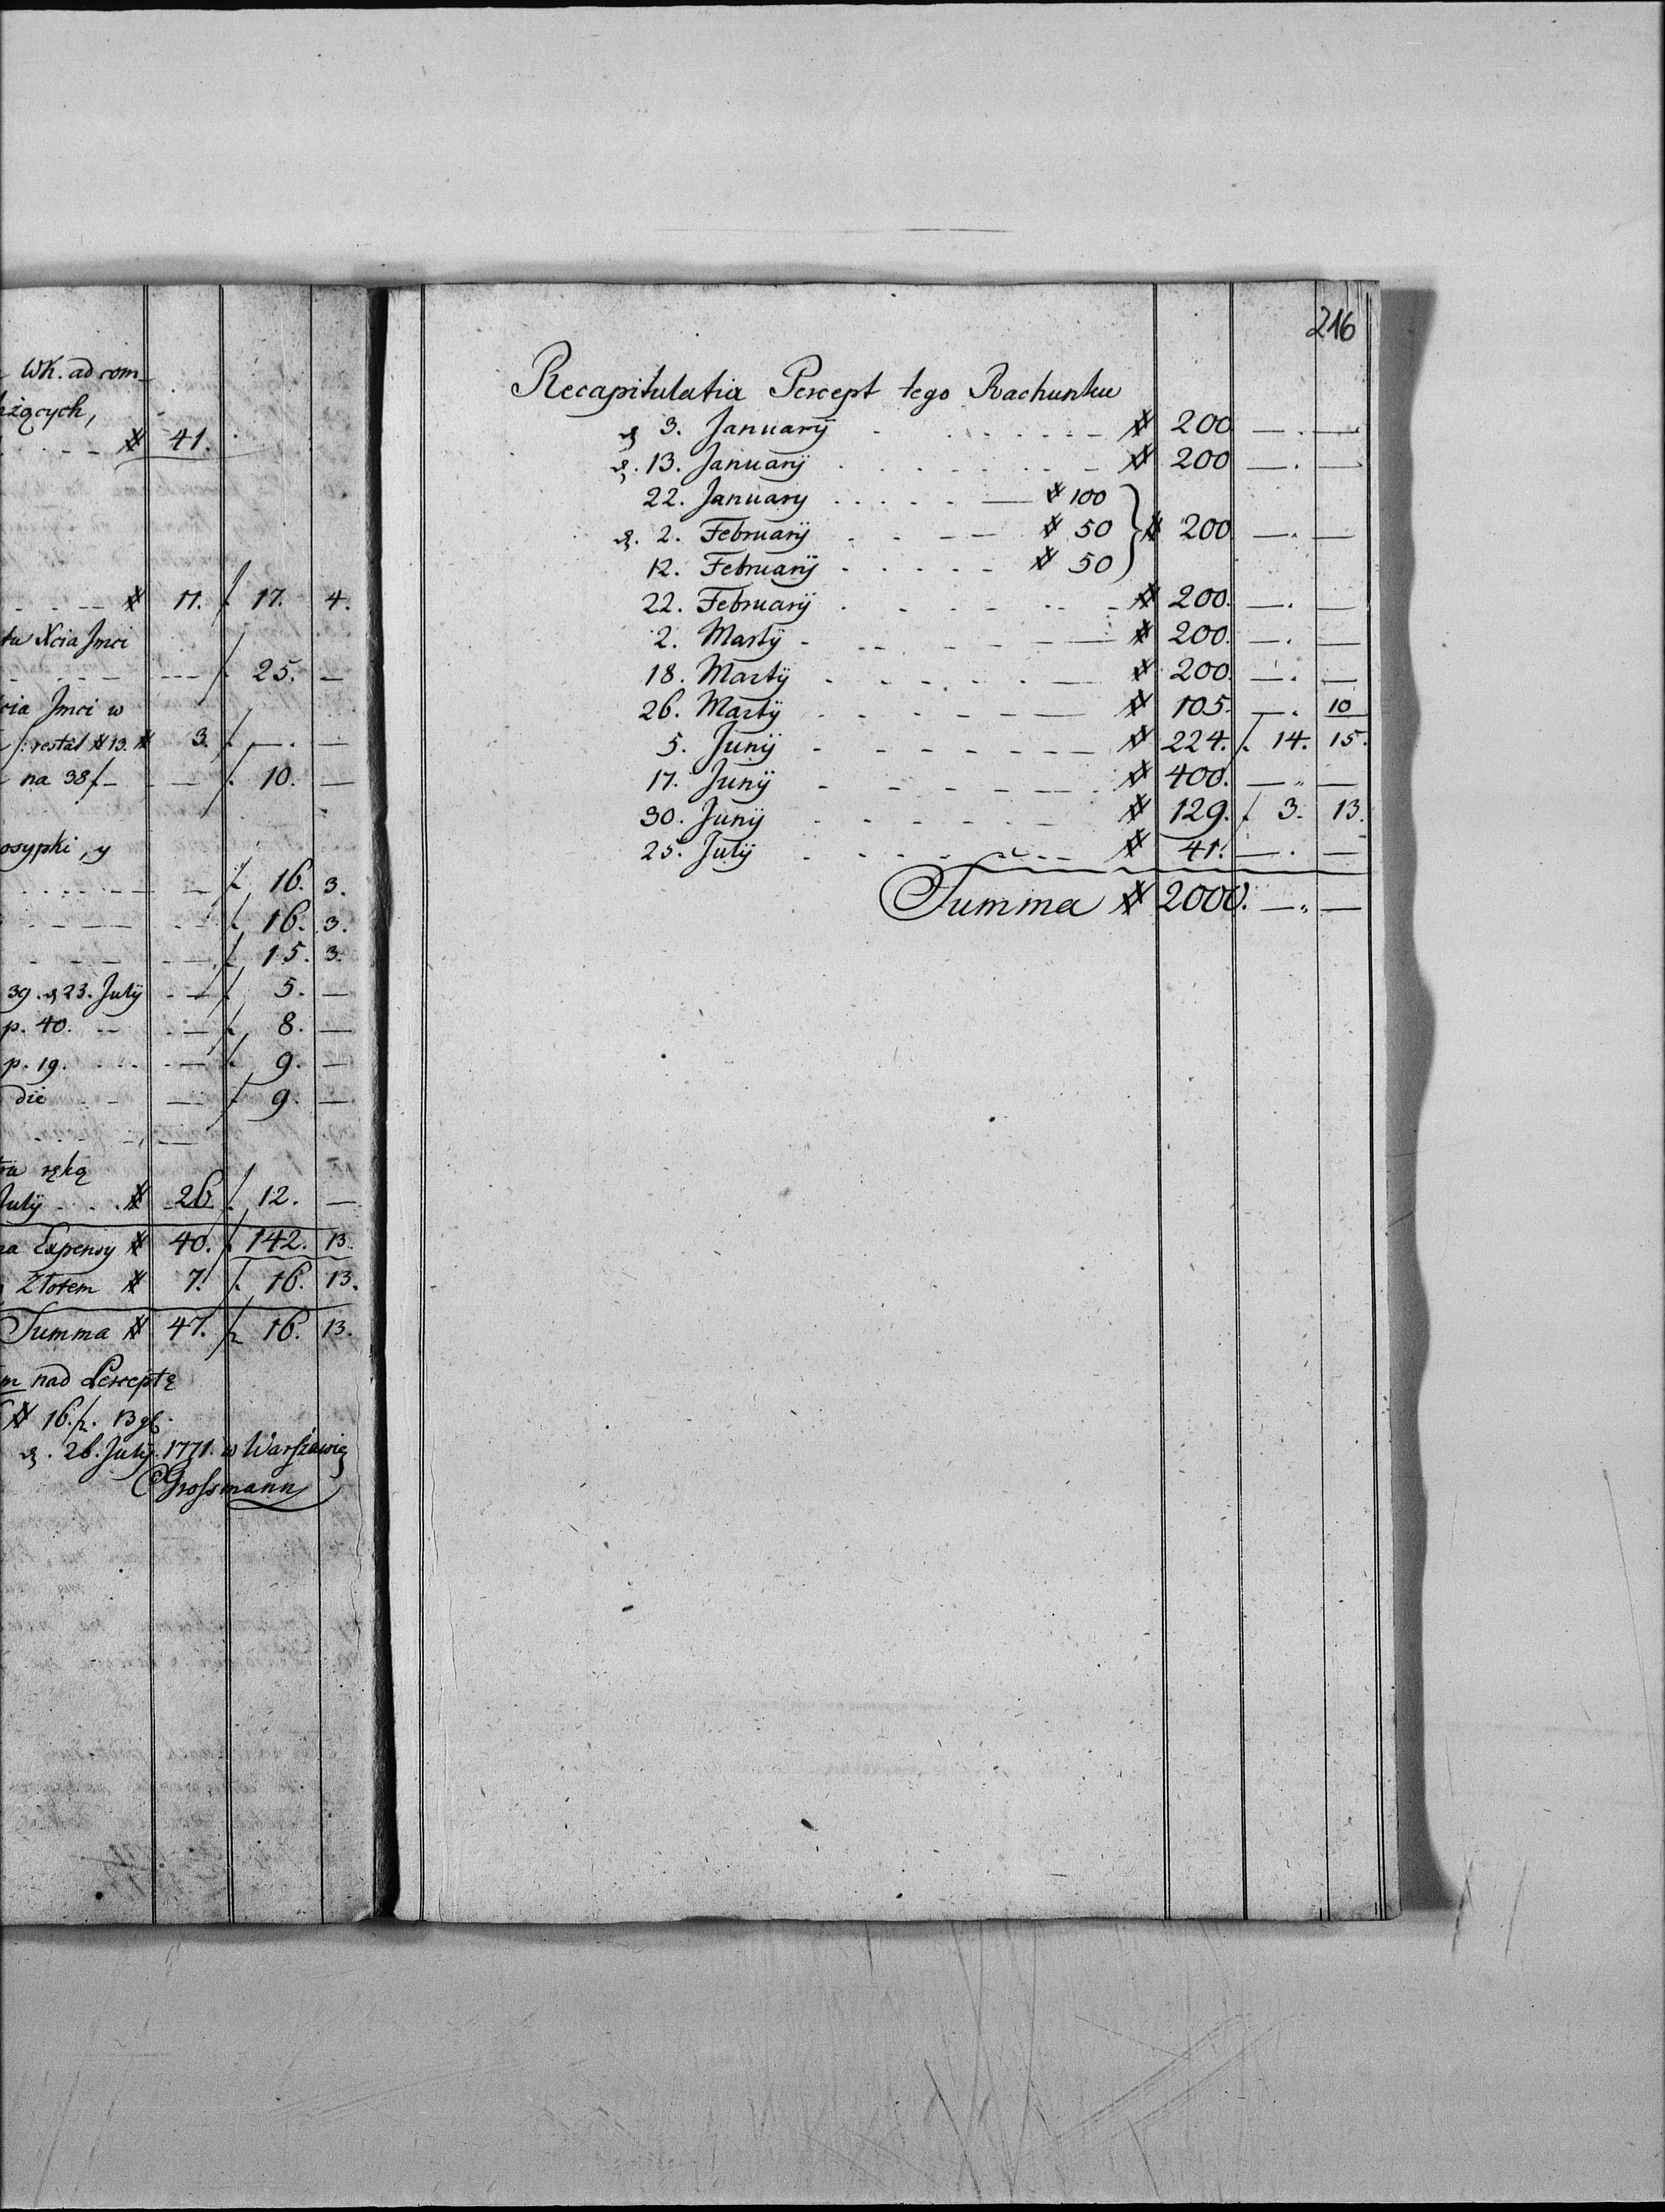 WK. ad com
żących,
# 41.
# 11. f. 17. 4.
tu Xcia Jmci
f. 25. —
cia Jmci w
/: restat # 13. # 3. f. —. —
na 38 f — — f. 10. —
osypki, y
f. 16. 3.
f. 16. 3.
f. 15. 3.
39. d. 23. July — f. 5. —
p. 40. — f. 8. —
p. 19. — f. 9. —
die — f. 9. —
ręką
July # 26. f. 12. —
Expensy # 40. f. 142. 13.
Złotem # 7. f. 16. 13.
Summa # 47. f. 16. 13.
m nad Perceptę
# 16. f. 13 gl.
d. 26. July. 1771. w Warszawie
Grossmann
216
Recapitulatia Percept tego Rachunku
d. 3. January # 200 —. —
d. 13. January # 200 —. —
22. January # 100
d. 2. February # 50 } # 200 —. —
12. February # 50
22. February # 200. —. —
2. Marty # 200. —. —
18. Marty # 200. —. —
26. Marty # 105. —. 10
5. Juny # 224. f. 14. 15.
17. Juny # 400. —. —
30. Juny # 129. f. 3. 13.
25. July # 41. —. —
Summa # 2000. —. —